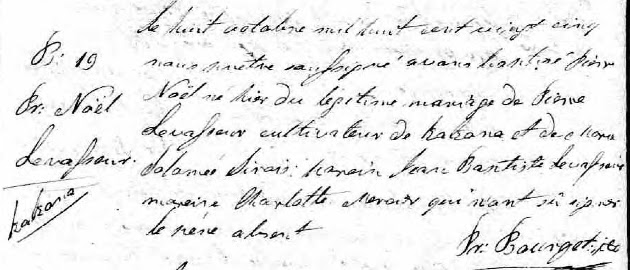 Le huit octobre mil huit cent vingt cinq
B: 19
nous prêtre soussigné avons baptisé Pierre
Pr: Noël
Noël né hier du légitime mariage de Pierre
Levasseur
Levasseur cultivateur de kakona et de
Sirois. parain Jean Baptiste Levasseur
kakona
maraine Charlotte qui n'ont su signer
le père absent
Pr: Bourget, ptre